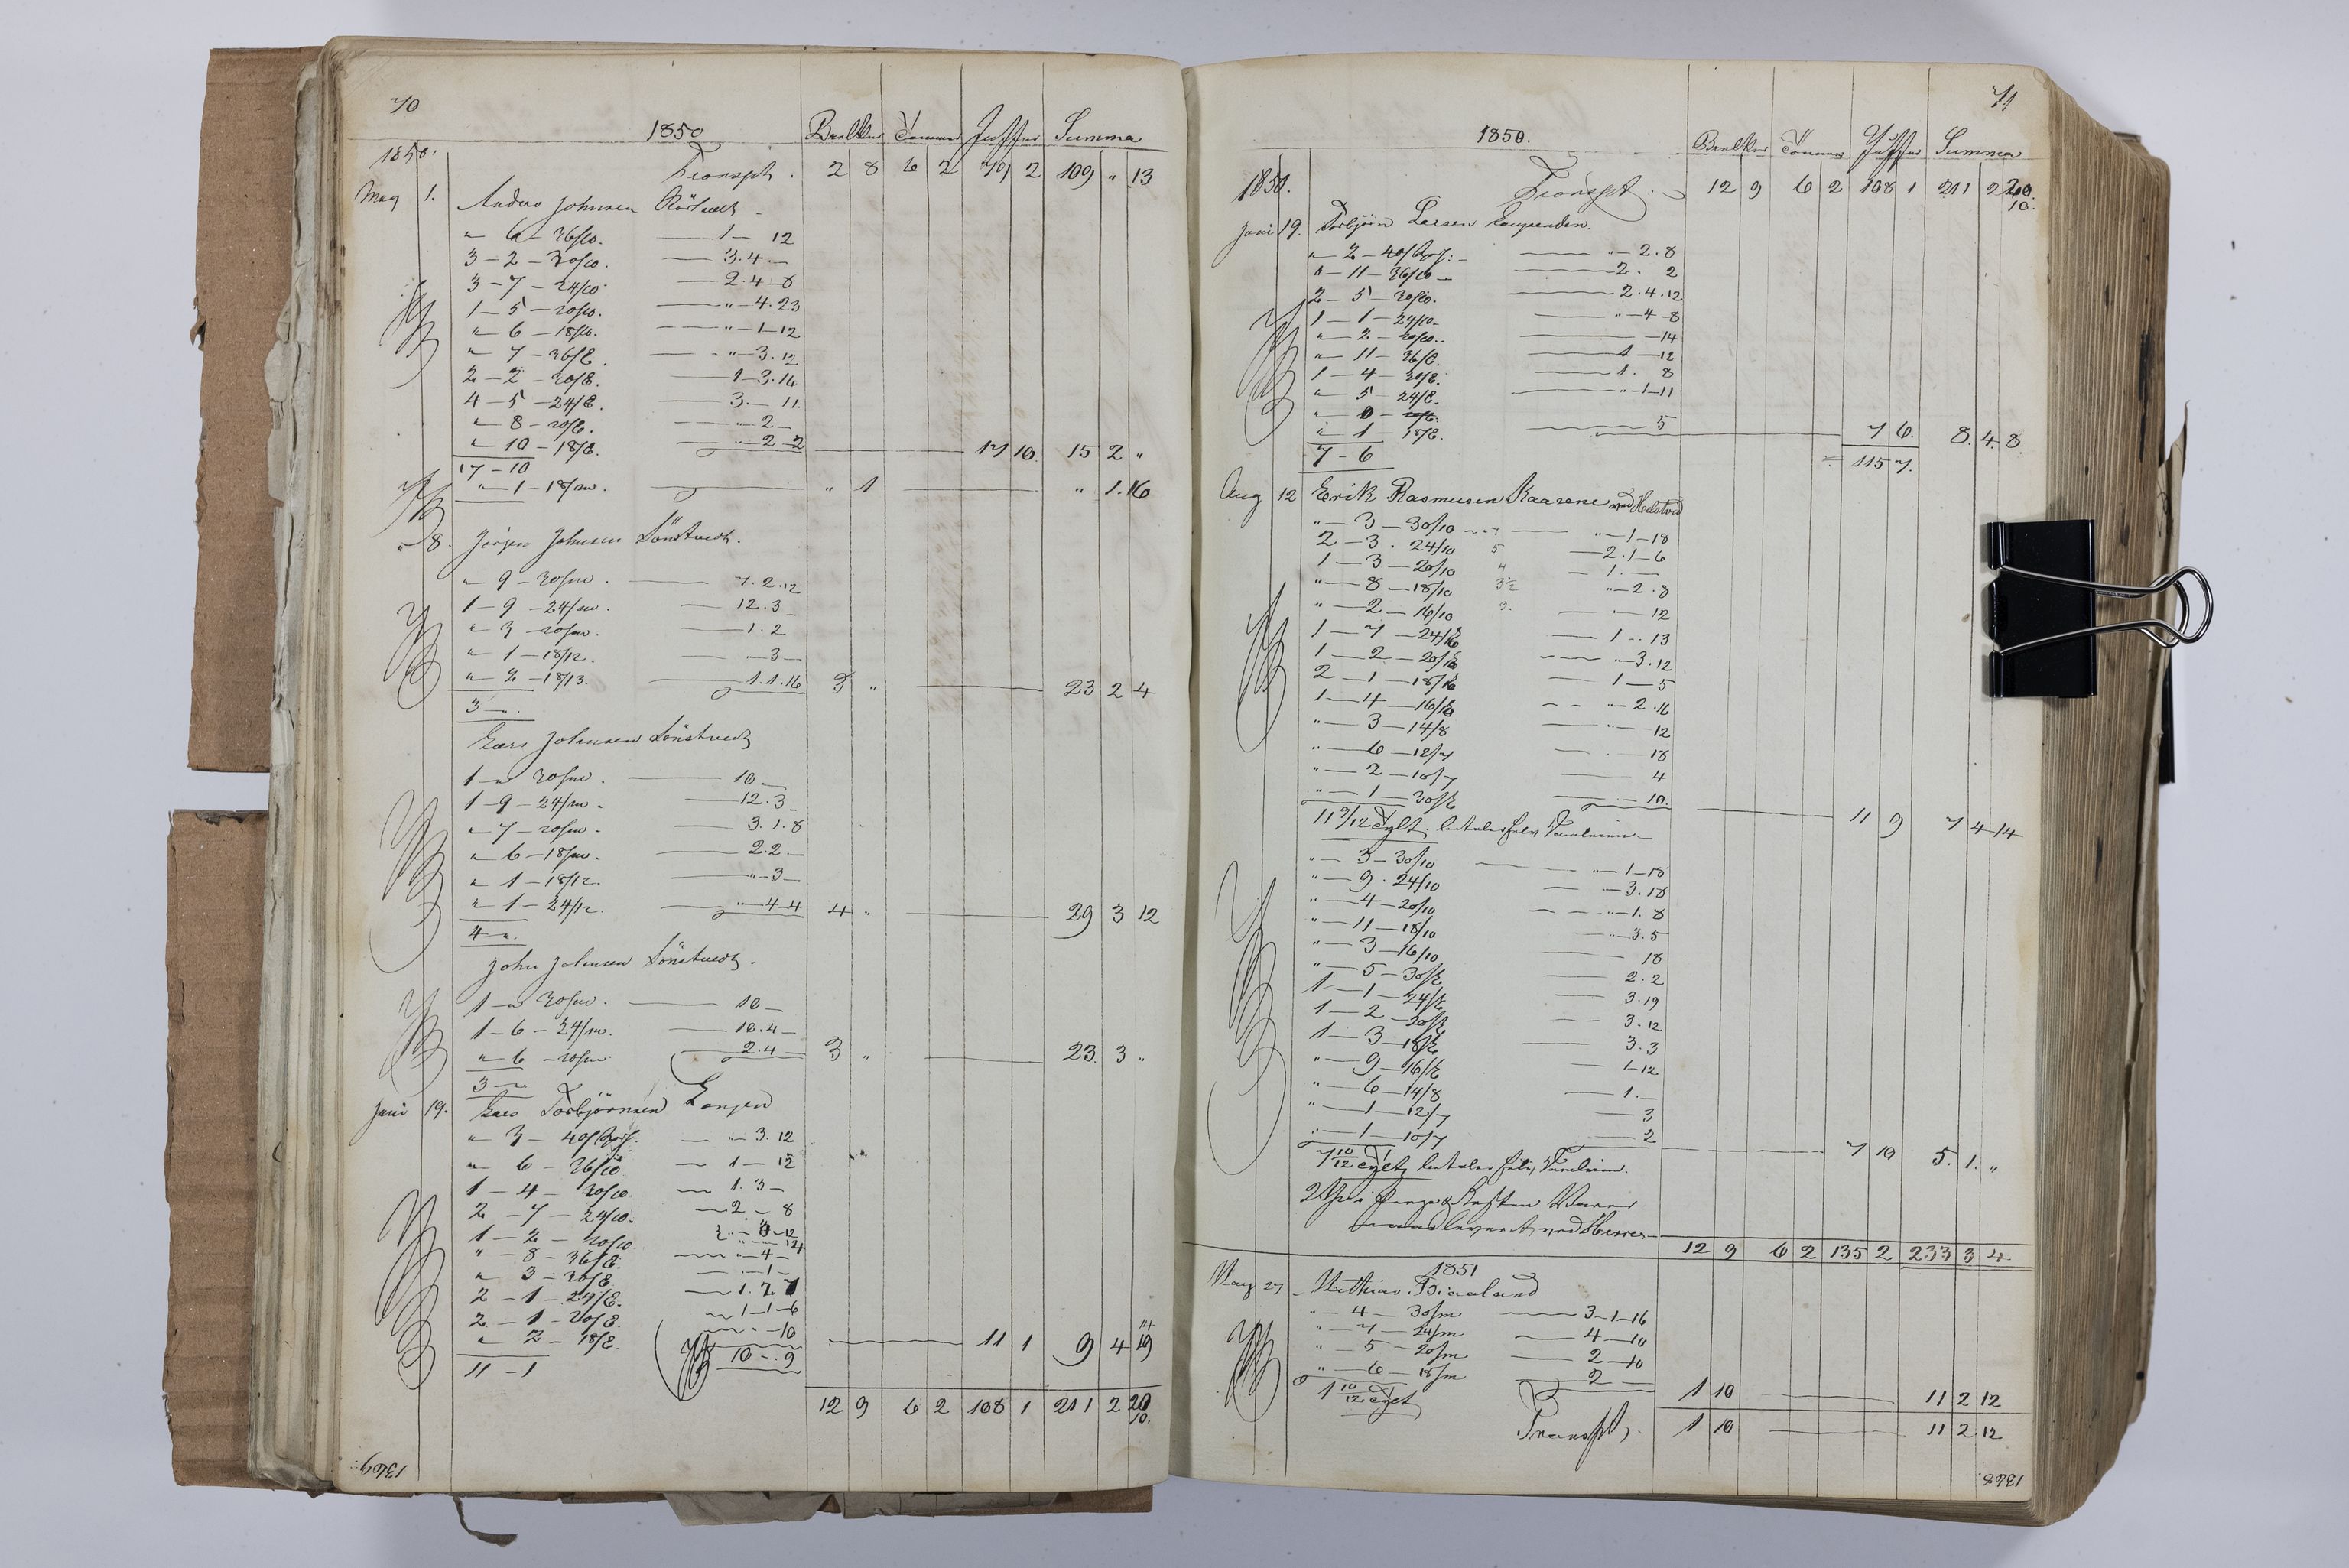 70
1850 Bealker Tommer Juffer Summa
1850. Transpt. 2 8 6 2 79 2 109 " 13
May 1. Anders Johnsen
" 6 - 36/10. — 1 — 12
3 - 2 - 30/10. — 3.4.—
3 - 7 - 24/10. — 2.4-8
1 - 5 - 20/10. — " - 4.23
" 6 - 18/10. — " - 1-12
" 7 - 36/8. — " - 3.12
2 - 2 - 30/8. — 1-3.16
4 - 5 - 24/8. — 3. — 11.
" 8 - 20/8. — " 2 —
" 10 - 18/8. — " - 2 2 — 17 10. 15 2 "
17 - 10
" 1 - 18/m. — " 1 — " 1.16
" 8. Jörgen Johnsen Sönstvedt.
" 9 - 30/m. — 7.2.12
1 - 9 - 24/m. — 12.3 —
" 3 - 20/m. — 1.2
" 1 - 18/12. — 3 —
" 2 - 18/13. — 1.1.16 3 " — 23 2 4
3 - ".
Lars Johnsen Sönstvedt
1 - " 30/m. — 10 —
1 - 9 - 24/m. — 12.3 —
" 7 - 20/m. — 3.1.8
" 6 - 18/m. — 2.2 —
" 1 - 18/12. — " 3 —
" 1 - 24/12. — " 4 4 4 " — 29 3 12
4 - ".
John Johnsen Sönstvedt.
1 - " 30/m. — 10 —
1 - 6 - 24/m. — 10.4 —
" 6 - 20/m. — 2.4 — 3 " — 23. 3 "
3 - "
Juni 19. Lars Torbjörnsen
" 3 - 40/ — " 3.12
" 6 - 36/10 — 1 — 12
1 - 4 - 30/10. — 1.3 —
2 - 7 - 24/10. — 2 - 8
1 - 2 - 20/10
" - 8 - 36/8. — " - 4 —
" 3 - 30/8. — " - 1 -
2 - 1 - 24/8. — 1.2
2 - 1 - 20/8. — 1-1-6
" 2 - 18/8. — " - 10
11 - 1 10 - . 9 — 11 1 9 4 19
12 9 6 2 108 1 211 2 20
10.
1369
71
1850. Bealker Tommer Juffer Summa
1850. Transpt. 12 9 6 2 108 1 211 2 20
10.
Juni 19. Torbjörn Larsen
" 2 - 40/ — " - 2.8
" 11 - 36/10 — 2. 2
2 - 5 - 30/10. — 2.4.12
1 - 1 - 24/10 — " - 4 - 8
" 2 - 20/10. — 14
" 11 - 36/8. — 1 - 12
1 - 4 - 30/8. — 1. 8
" 5 - 24/8. — " - 1-11
" 1 - 18/8. — 5 — 7 6. 8. 4. 8.
7 - 6 115 7.
Aug 12 Erik Rasmusen Kaasene ved
" - 3 - 30/10 — " - 1 - 18
2 - 3. 24/10 5 — 2.1-6
1 - 3 - 20/10 4 — 1. —
" - 8 - 18/10 3½ " - 2.8
" - 2 - 16/10 3. — 12
1 - 7 - 24/8 — 1 - 13
1 - 2 - 20/8 — " - 3.12
2 - 1 - 18/8 — 1 - 5
1 - 4 - 16/8 — " - 2.16
" - 3 - 14/8 — 12
" - 6 - 12/7 — 18
" - 2 - 10/7 — 4
" - 1 - 30/8 — 10. — 11 9 7 4 14
11 9/12 Tylt. betales
" - 3 - 30/10 — " - 1-18
" - 9. 24/10 — " - 3.18
" - 4 - 20/10 — " - 1.8
" - 11 - 18/10 — " - 3.5
" - 3 - 16/10 — 18
" - 5 - 30/8 — 2.2
1 - 1 - 24/8 — 3.19
1 - 2 - 20/8 — 3.12
1 - 3 - 18/8 — 3.3
" - 9 - 16/8 — 1-12
" - 6 - 14/8 — 1. —
" - 1 - 12/7 — 3
" - 1 - 10/7 — 2 — 7 10 5. 1. "
7 10/12 Tylt betales
12 9 6 2 135 2 233 3 4
1851
May 27 Mathias
" - 4 - 30/m — 3-1-16
" - 7 - 24/m — 4 - 10
" - 5 - 20/m — 2 - 10
" - 6 - 18/m — 2 — 1 10 — 11 2 12
1 10/12 Tylt
Transpt. 1 10 — 11 2 12
1368